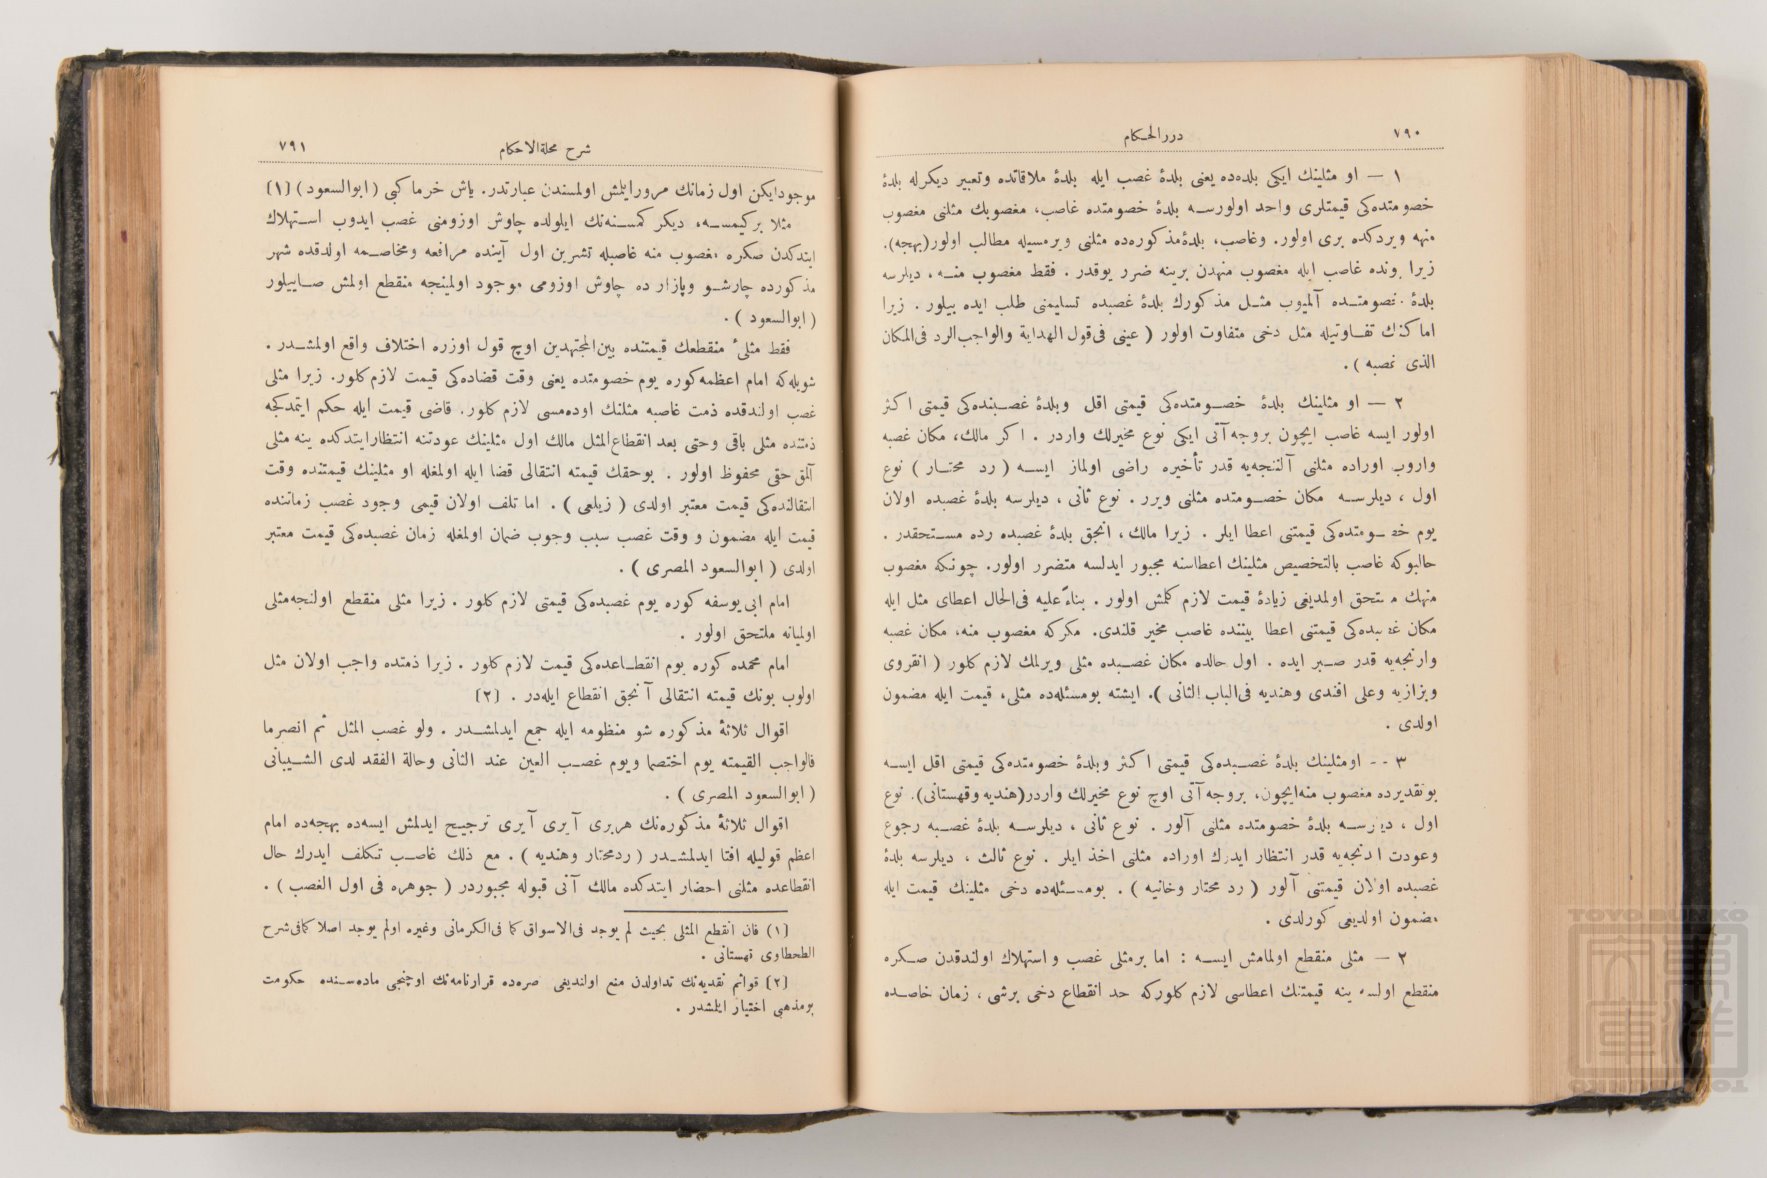 ٧٩٠
دررالحكام
١ — او مثلينك ايكى بلده‌ده يعنى بلدۀ غصب ايله بلدۀ ملاقاتده وتعبير ديكرله بلدۀ
خصومتده‌كى قيمتلرى واحد اولورسه بلدۀ خصومتده غاصب، مغصوبك مثلنى مغصوب
منهه ويردكده برى اولور. وغاصب، بلدۀ مذكوره‌ده مثلنى ويرمسيله مطالب اولور(بهجه).
زيرا بونده غاصب ايله مغصوب منهدن برينه ضرر يوقدر . فقط مغصوب منه ، ديلرسه
بلدۀ خصومتده آلميوب مثل مذكورك بلدۀ غصبده تسليمنى طلب ايده بيلور . زيرا
اماكنك تفاوتيله مثل دخى متفاوت اولور ( عينى فى‌قول الهداية والواجب‌الرد فى‌المكان
الذى غصبه ) .
٢ — او مثلينك بلدۀ خصومتده‌كى قيمتى اقل وبلدۀ غصبنده‌كى قيمتى اكثر
اولور ايسه غاصب ايچون بروجه آتى ايكى نوع مخيرلك واردر . اكر مالك، مكان غصبه
واروب اوراده مثلنى آلنجه‌يه قدر تأخيره راضى اولماز ايسه ( رد محتار ) نوع
اول ، ديلرسه مكان خصومتده مثلنى ويرر . نوع ثانى ، ديلرسه بلدۀ غصبده اولان
يوم خصومتده‌كى قيمتنى اعطا ايلر . زيرا مالك، انجق بلدۀ غصبده رده مستحقدر .
حالبوكه غاصب بالتخصيص مثلينك اعطاسنه مجبور ايدلسه متضرر اولور. چونكه مغصوب
منهك مستحق اولمديغى زيادۀ قيمت لازم كلمش اولور . بناءً عليه فى‌الحال اعطاى مثل ايله
مكان غصبده‌كى قيمتنى اعطا بيننده غاصب مخير قلندى. مكركه مغصوب منه، مكان غصبه
وارنجه‌يه قدر صبر ايده . اول حالده مكان غصبده مثلى ويرلمك لازم كلور ( انقروى
وبزازيه وعلى افندى وهنديه فى‌الباب الثانى ). ايشته بومسئله‌ده مثلى، قيمت ايله مضمون
اولدى .
٣ — اومثلينك بلدۀ غصبده‌كى قيمتى اكثر وبلدۀ خصومتده‌كى قيمتى اقل ايسه
بوتقديرده مغصوب منه‌ايچون، بروجه آتى اوچ نوع مخيرلك واردر(هنديه وقهستانى). نوع
اول ، ديلرسه بلدۀ خصومتده مثلنى آلور . نوع ثانى ، ديلرسه بلدۀ غصبه رجوع
وعودت ايدنجه‌يه قدر انتظار ايدرك اوراده مثلنى اخذ ايلر . نوع ثالث ، ديلرسه بلدۀ
غصبده اولان قيمتنى آلور ( رد محتار وخانيه ) . بومسئله‌ده دخى مثلينك قيمت ايله
مضمون اولديغى كورلدى .
٢ — مثلى منقطع اولمامش ايسه : اما برمثلى غصب و استهلاك اولندقدن صكره
منقطع اولسه ينه قيمتنك اعطاسى لازم كلوركه حد انقطاع دخى برشى ، زمان خاصده
شرح مجلة‌الاحكام
٧٩١
موجودايكن اول زمانك مرورايلمش اولمسندن عبارتدر. ياش خرما كبى (ابوالسعود) [١]
مثلا بركيمسه، ديكر كمسنه‌نك ايلولده چاوش اوزومنى غصب ايدوب استهلاك
ايتدكدن صكره مغصوب منه غاصبله تشرين اول آينده مرافعه ومخاصمه اولدقده شهر
مذكورده چارشو وپازار ده چاوش اوزومى موجود اولمينجه منقطع اولمش صاييلور
( ابوالسعود ) .
فقط مثلئ منقطعك قيمتنده بين‌المجتهدين اوچ قول اوزره اختلاف واقع اولمشدر .
شويله‌كه امام اعظمه‌كوره يوم خصومتده يعنى وقت قضاده‌كى قيمت لازم‌كلور. زيرا مثلى
غصب اولندقده ذمت غاصبه مثلنك اوده‌مسى لازم كلور. قاضى قيمت ايله حكم ايتمدكجه
ذمتنده مثلى باقى وحتى بعد انقطاع‌المثل مالك اول مثلينك عودتنه انتظارايتدكده ينه مثلى
آلمق حقى محفوظ اولور . بوحقك قيمته انتقالى قضا ايله اولمغله او مثلينك قيمتنده وقت
انتقالنده‌كى قيمت معتبر اولدى ( زيلعى ) . اما تلف اولان قيمى وجود غصب زماننده
قيمت ايله مضمون و وقت غصب سبب وجوب ضمان اولمغله زمان غصبده‌كى قيمت معتبر
اولدى ( ابوالسعود المصرى ) .
امام ابى‌يوسفه كوره يوم غصبده‌كى قيمتى لازم كلور . زيرا مثلى منقطع اولنجه‌مثلى
اولميانه ملتحق اولور .
امام محمده كوره يوم انقطاعده‌كى قيمت لازم كلور . زيرا ذمتده واجب اولان مثل
اولوب بونك قيمته انتقالى آنجق انقطاع ايله‌در . [٢]
اقوال ثلاثۀ مذكوره شو منظومه ايله جمع ايدلمشدر . ولو غصب المثل ثم انصرما
فالواجب القيمته يوم اختصما ويوم غصب العين عند الثانى وحالة الفقد لدى الشيبانى
( ابوالسعود المصرى ) .
اقوال ثلاثۀ مذكوره‌نك هربرى آيرى آيرى ترجيح ايدلمش ايسه‌ده بهجه‌ده امام
اعظم قوليله افتا ايدلمشدر ( ردمحتار وهنديه ) . مع ذلك غاصب تكلف ايدرك حال
انقطاعده مثلنى احضار ايتدكده مالك آنى قبوله مجبوردر ( جوهره فى اول الغصب ) .
[١] فان انقطع المثلى بحيث لم يوجد فى‌الاسواق كما فى‌الكرمانى وغيره اولم يوجد اصلا كمافى‌شرح
الطحطاوى قهستانى .
[٢] قوائم نقديه‌نك تداولدن منع اولنديغى صره‌ده قرارنامه‌نك اوچنجى ماده‌سنده حكومت
برمذهبى اختيار ايلمشدر .
TOYO BUNKO
東洋文庫